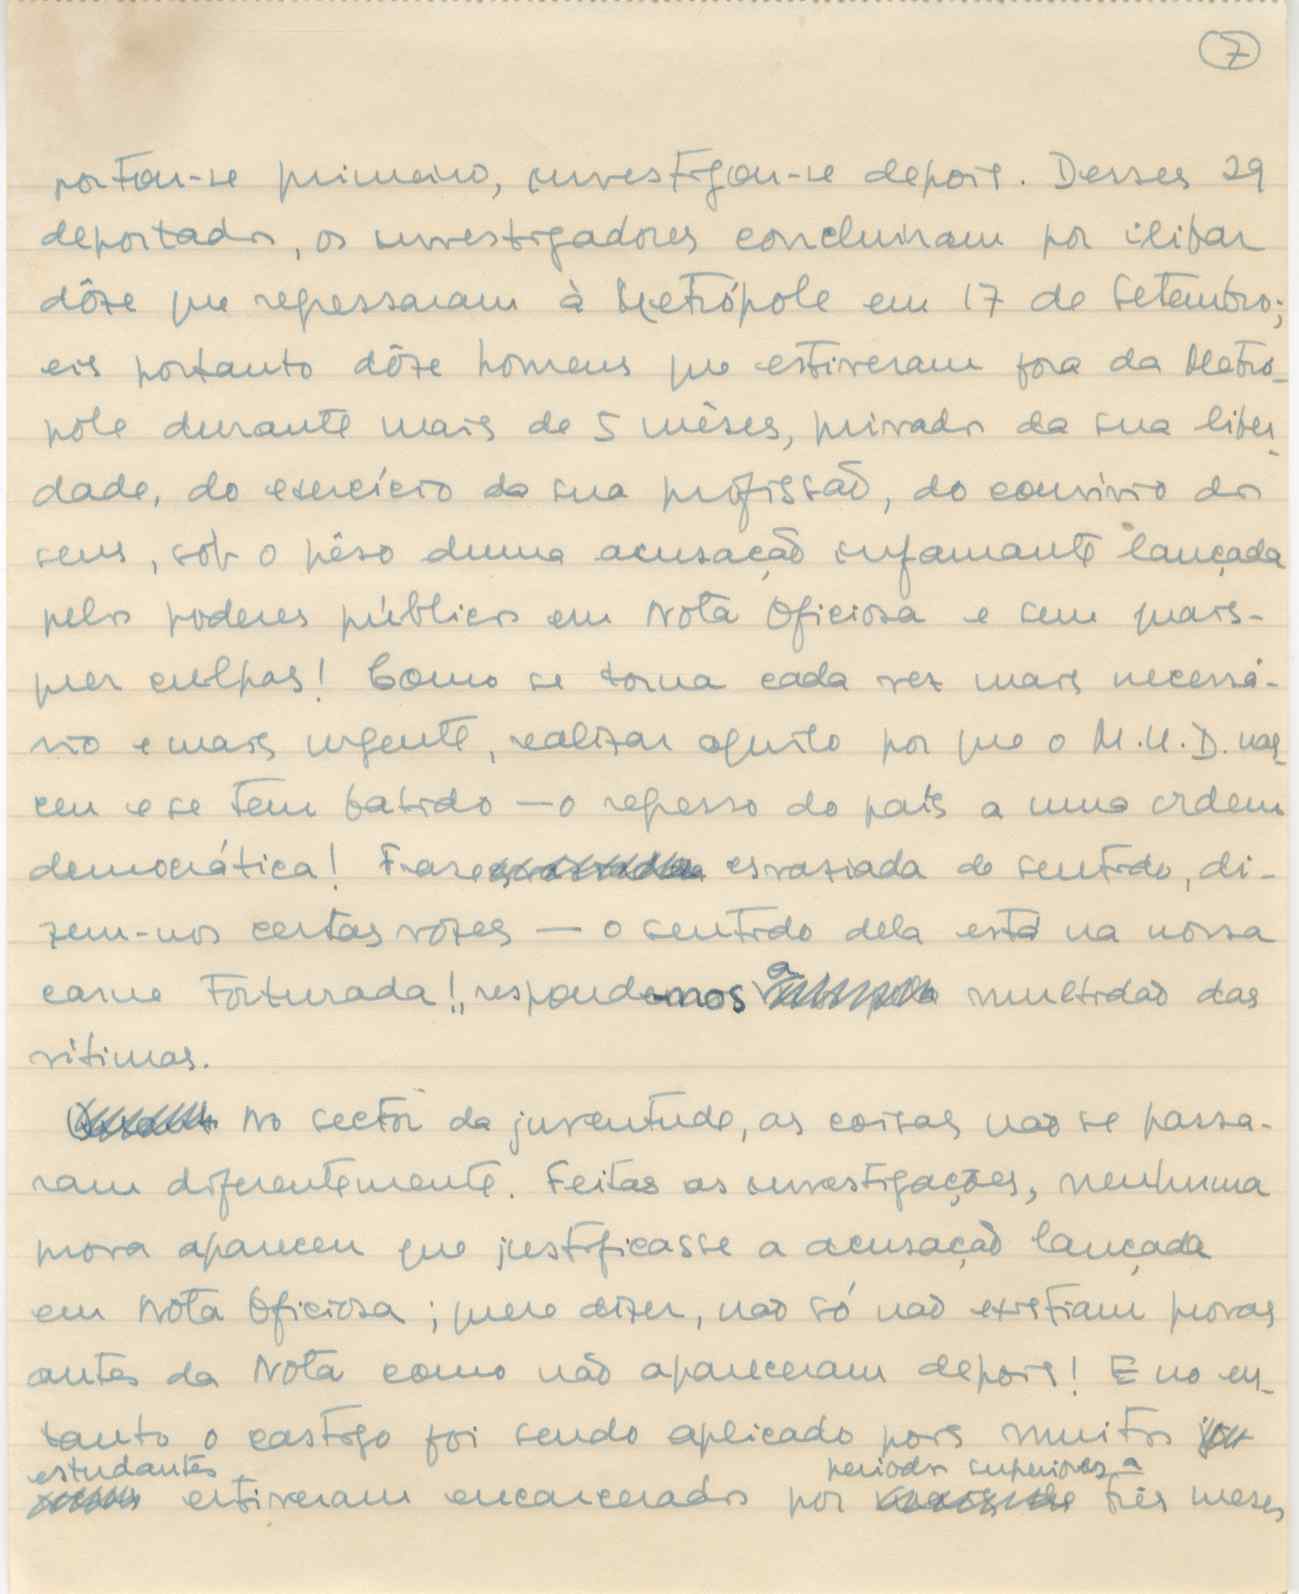 7
portou-se primeiro, investigou-se depois. Desses 29
deportados, os investigadores concluiram por ilibar
dôze que regressaram à Metrópole em 17 de Setembro;
eis portanto dôze homens que estiveram fora da Metró-
pole durante mais de 5 mêses, privados da sua liber-
dade, do exercício da sua profissão, do convívio dos
seus, sob o pêso duma acusação infamante lançada
pelos poderes públicos em Nota Oficiosa e sem quais-
quer culpas! Como se torna cada vez mais necessá-
rio e mais urgente, realizar aquilo por que o M.U.D. nas-
ceu e se tem batido — o regresso do país a uma ordem
democrática! Frase esvaziada de sentido, di-
zem-nos certas vozes — o sentido dela está na nossa
carne torturada!, respondemos a multidão das
vítimas.
No sector da juventude, as coisas não se passa-
ram diferentemente. Feitas as investigações, nenhuma
prova apareceu que justificasse a acusação lançada
em Nota Oficiosa; quere dizer, não só não existiam provas
antes da Nota como não apareceram depois! E no en-
tanto o castigo foi sendo aplicado pois muitos
estudantes periodos superiores a
estiveram encarcerados por três meses